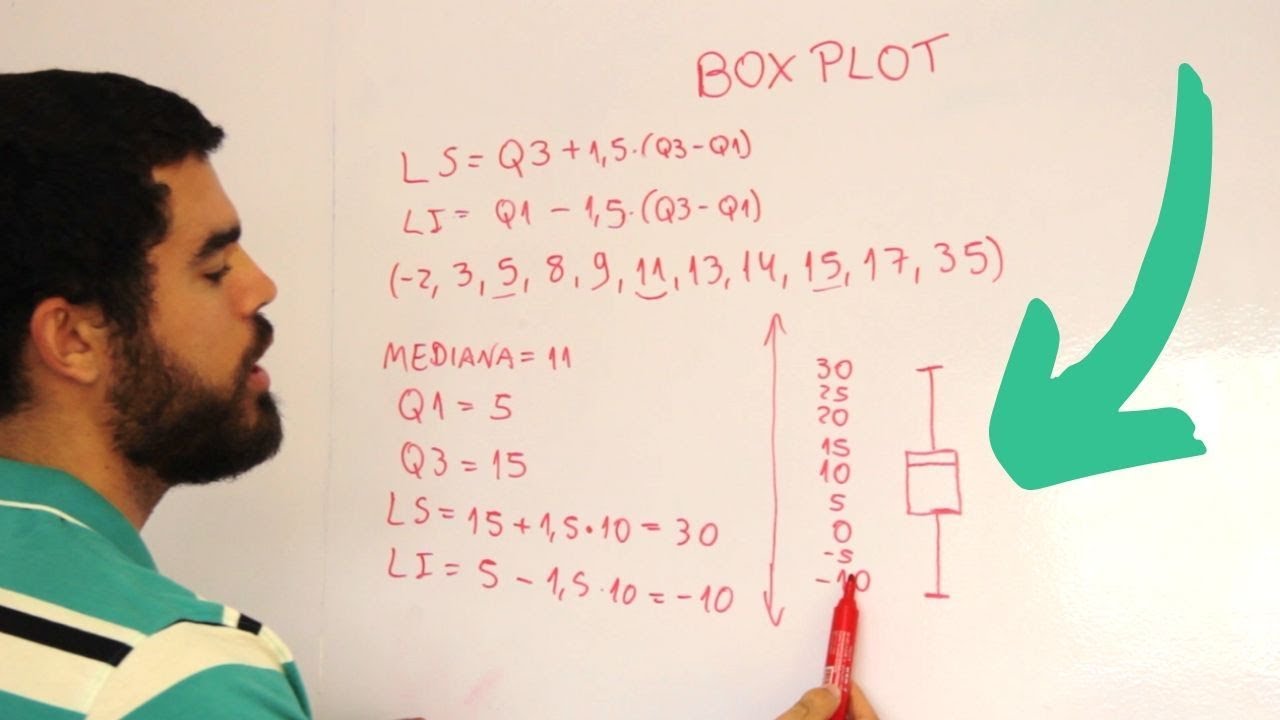 BOX PLOT
LS = Q3 + 1,5.(Q3 - Q1)
LI = Q1 - 1,5.(Q3 - Q1)
(-2, 3, 5, 8, 9, 11, 13, 14, 15, 17, 35)
MEDIANA = 11
Q1 = 5
Q3 = 15
LS = 15 + 1,5.10 = 30
LI = 5 - 1,5.10 = -10
30
25
20
15
10
5
0
-5
-10